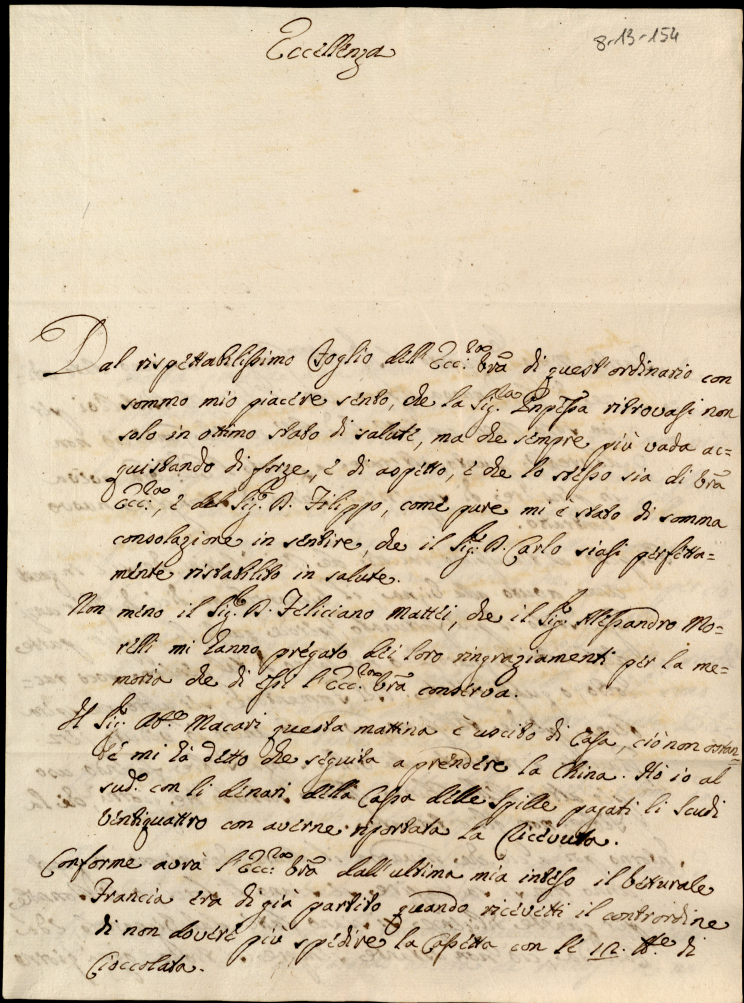 Eccellenza
8-13-154
Dal rispettabilissimo Foglio dell'Ecc:za Vrã di quest'ordinario con
sommo mio piacere sento, che la Sig.ra Pnp̃essa ritrovasi non
solo in ottimo stato di salute, ma che sempre più vada ac=
quistando di forze, e di aspetto, e che lo stesso sia di Vrã
Ecc:za, e del Sig.r D. Filippo, come pure mi è stato di somma
consolazione in sentire, che il Sig.r D. Carlo siasi perfetta=
mente ristabilito in salute.
Non meno il Sig.r D. Feliciano Mattei, che il Sig.r Alessandro Mo=
relli mi hanno pregato dei loro ringraziamenti per la me=
moria che di essi l'Ecc:za Vrã conserva.
Il Sig.r Ab.e Macari questa mattina è uscito di Casa, ciò non ostan=
te mi hà detto che seguita a prendere la China. Hò io al
sud.o con li denari della Cassa delle Spille pagati li Scudi
ventiquattro con averne riportata la Ricevuta.
Conforme avrà l'Ecc:za Vrã dall'ultima mia inteso il Vetturale
Francia era di già partito quando ricevetti il contrordine
di non dovere più spedire la Cassetta con le 12. lb.e di
Cioccolata.